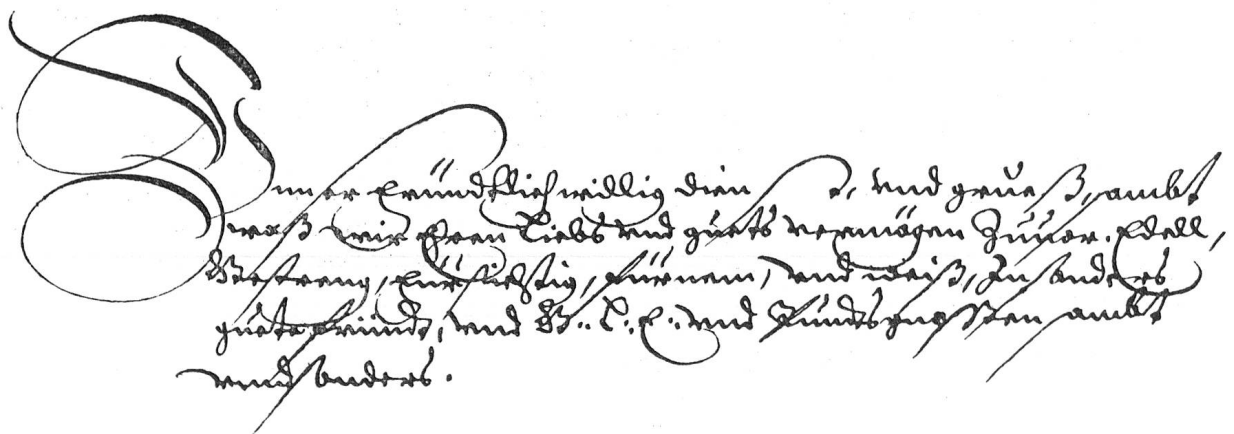 Unnser fründtlich willig dienst, vnd grueß, sambt
waß wir Eren Liebs vnd guets vermögen Zuuor. Edell,
Gestreng, fürsichtig, fürnem, vnd weiß, Insonders
guete fründt, vnd G: L: E: vnd Pundtsgnossen sambt
vnd sonders.